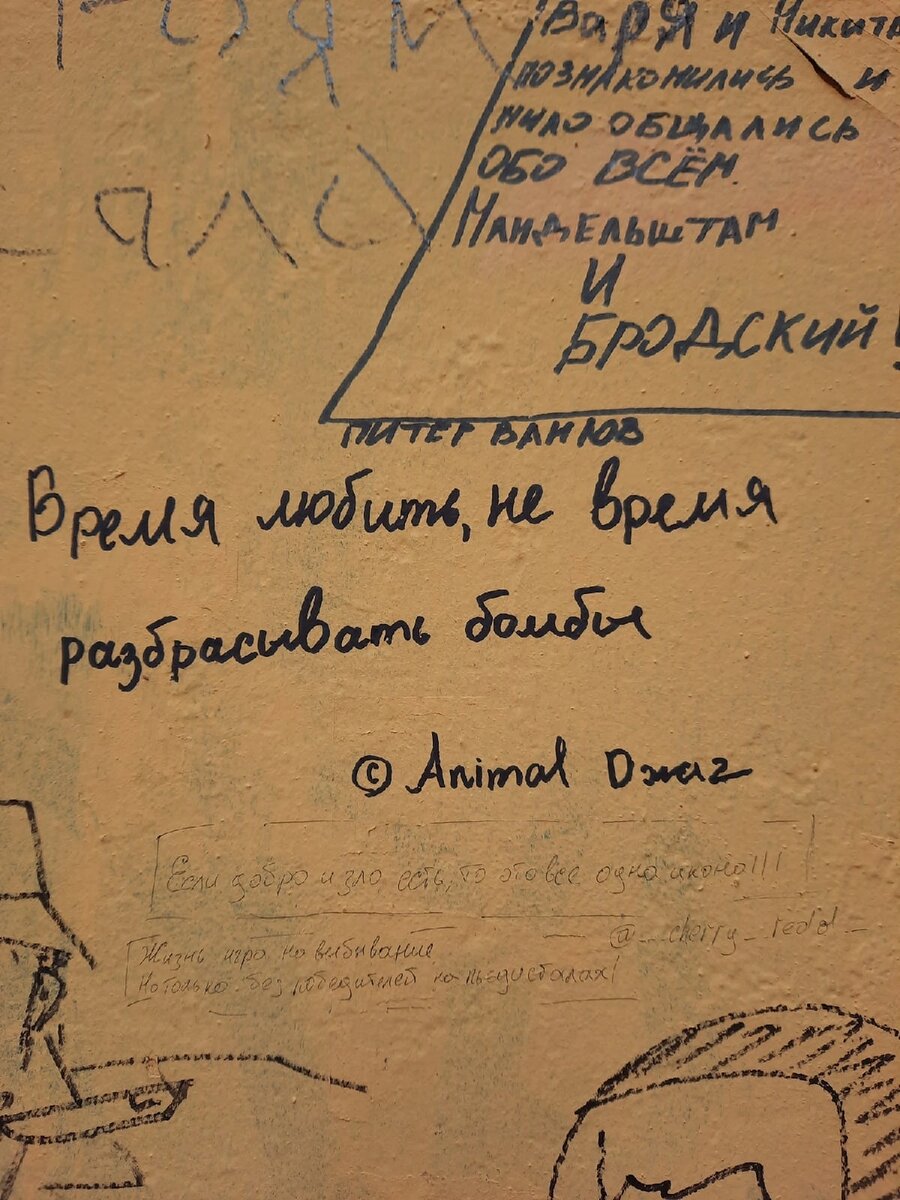 Варя и Никита
познакомились и
мило общались
обо всём.
Мандельштам
и
Бродский!
Питер
Время любить, не время
разбрасывать бомбы
© Animal Джаz
Если добро и зло есть, то это все одна икона!!!
@__cherry_redd_
Жизнь игра на выбывание
Но только без победителей на пьедисталах!